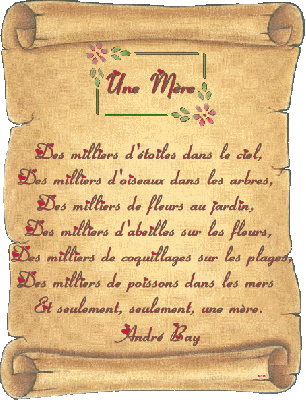 Une Mère
Des milliers d'étoiles dans le ciel,
Des milliers d'oiseaux dans les arbres,
Des milliers de fleurs au jardin,
Des milliers d'abeilles sur les fleurs,
Des milliers de coquillages sur les plages,
Des milliers de poissons dans les mers
Et seulement, seulement, une mère.
André Bay